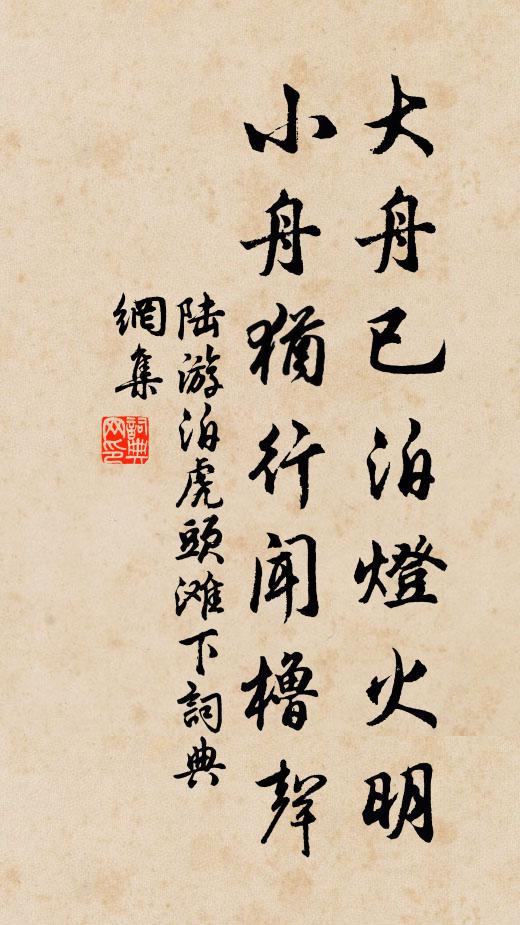 大舟已泊燈火明
小舟猶行聞櫓聲
陆游泊虎頭滩下詞典
網集
詞典
网印